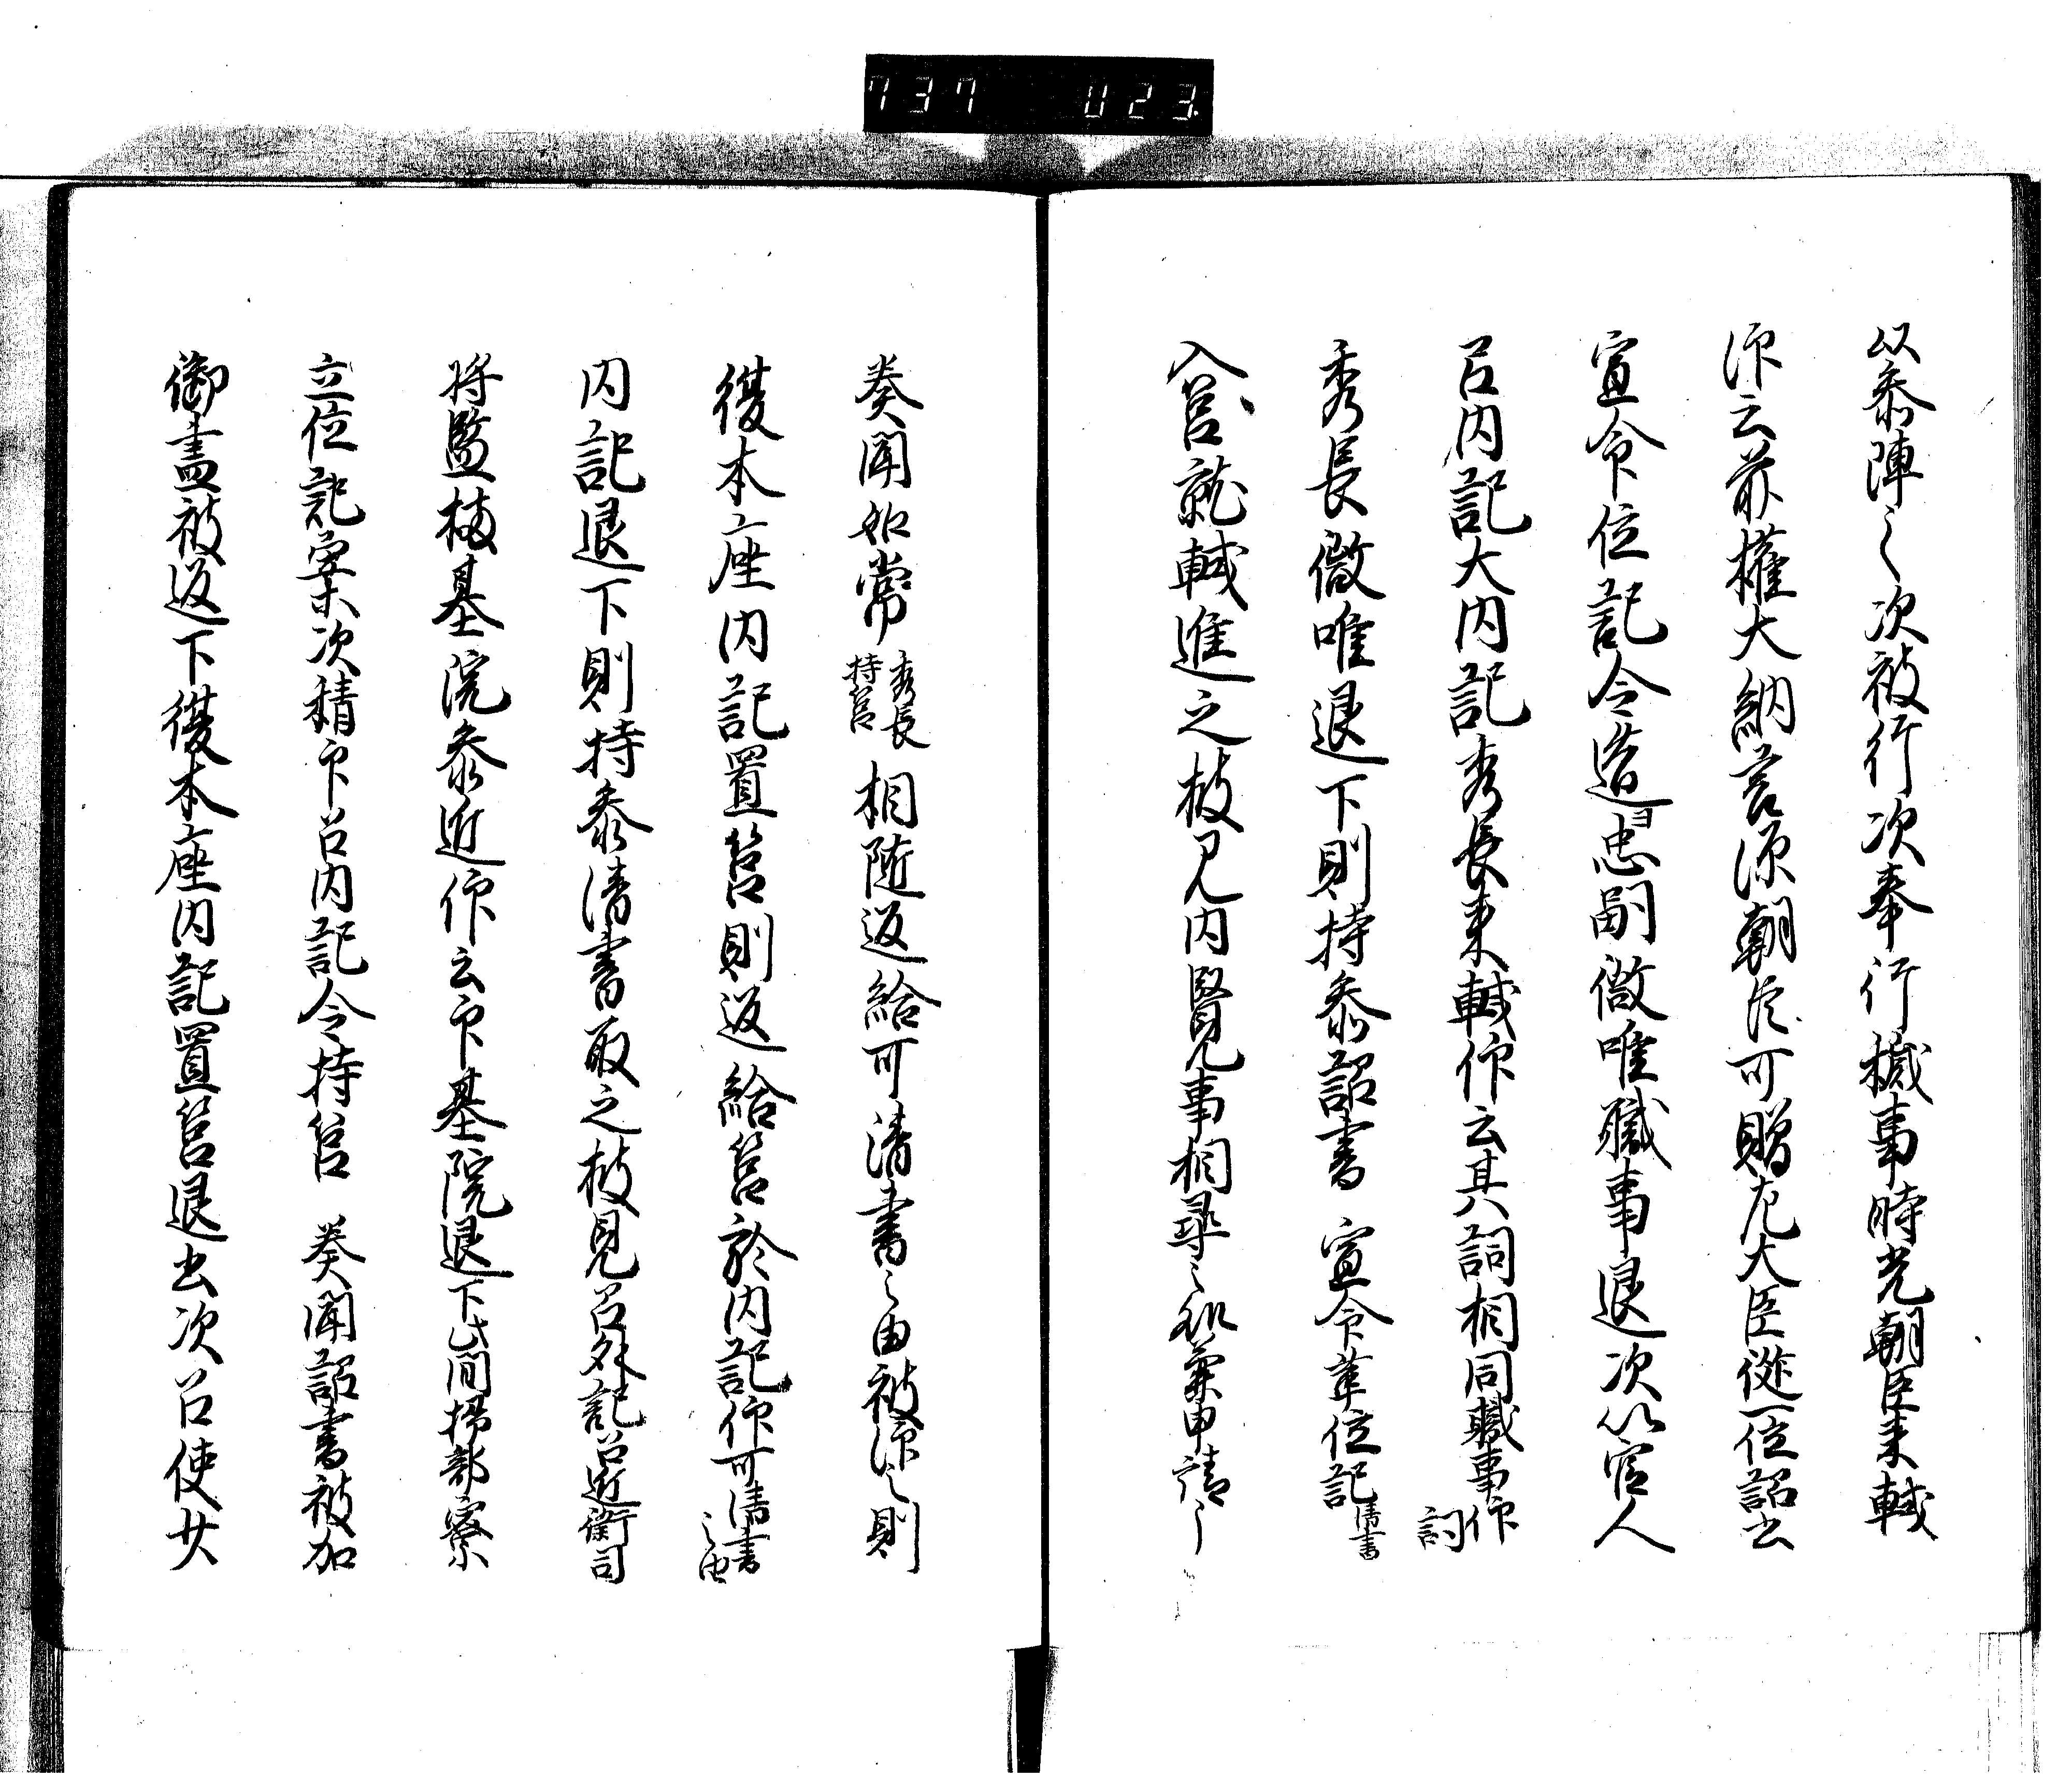 737 023
以参陣之次被行次奉行職事時光朝臣来軾
仰云前権大納言源朝臣可贈左大臣従一位詔書
宣命位記令造ヨ忠嗣微唯職事退次以官人
召内記大内記秀長来軾仰云其詞相同職事仰詞
秀長微唯退下則持参詔書 宣命草位記清書
入筥就軾進之披見内覧事相尋之処兼申請云々
奏聞如常秀長持筥相随返給可清書之由被仰之則
復本座内記置筥則返給筥於内記仰可清書之由
内記退下則持参清書取之披見召外記召近衛司
将監橘基院参近仰云印基院退下此間掃部寮
立位記案次積印召内記令持筥 奏聞詔書被加
御画被返下復本座内記置筥退出次召使廾